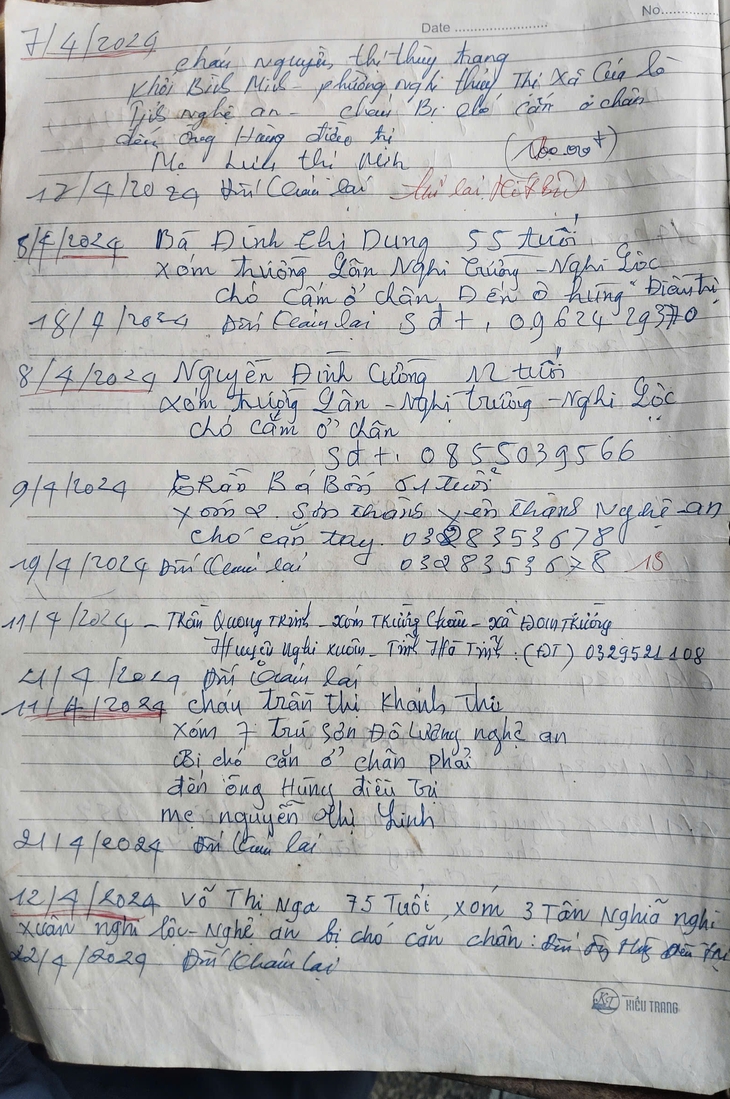 No..........
Date ..........................
7/4/2024
cháu Nguyễn thị thùy trang
Khối Bình Minh - phường nghi thủy Thị Xã Cửa Lò
Tỉnh nghệ an - cháu Bị chó cắn ở chân
đến ông Hùng điều trị
Mẹ thị Minh
17/4/2024 Đến Khám lại
8/4/2024 Bà Đinh Chị Dung 55 tuổi
xóm thường Lân Nghi trường - Nghi Lộc
chó cắm ở chân, Đến ô hùng Điều trị
18/4/2024 Đến Khám lại sđt, 0962429370
8/4/2024 Nguyễn Đình Cường 12 tuổi
xóm thượng Lân - Nghi trường - Nghi Lộc
chó cắm ở chân
sđt, 0855039566
9/4/2024 trần Bá Bốn 61 tuổi
xóm 2 Sơn thành yên thành Nghệ-an
chó cắn tay. 0328353678
19/4/2024 Đến Khám lại 0328353678 18
11/4/2024 - Trần Quang Trinh - xóm Trường Châu - xã Đan Trường
Huyện nghi xuân - Tỉnh Hà Tĩnh : (ĐT) 0329521108
21/4/2024 Đến Khám lại
11/4/2024 cháu trần thị Khánh Thư
xóm 7 trù sơn Đô Lương nghệ an
Bị chó cắn ở chân phải
đến ông Hùng điều trị
mẹ nguyễn thị Linh
21/4/2024 Đến Khám lại
12/4/2024 Võ Thị Nga 75 Tuổi, xóm 3 Tân Nghĩa nghi
xuân nghi lộc - Nghệ an bị chó cắn chân : đến ông Hùng điều trị
22/4/2024 Đến Khám lại
KT KIỀU TRANG